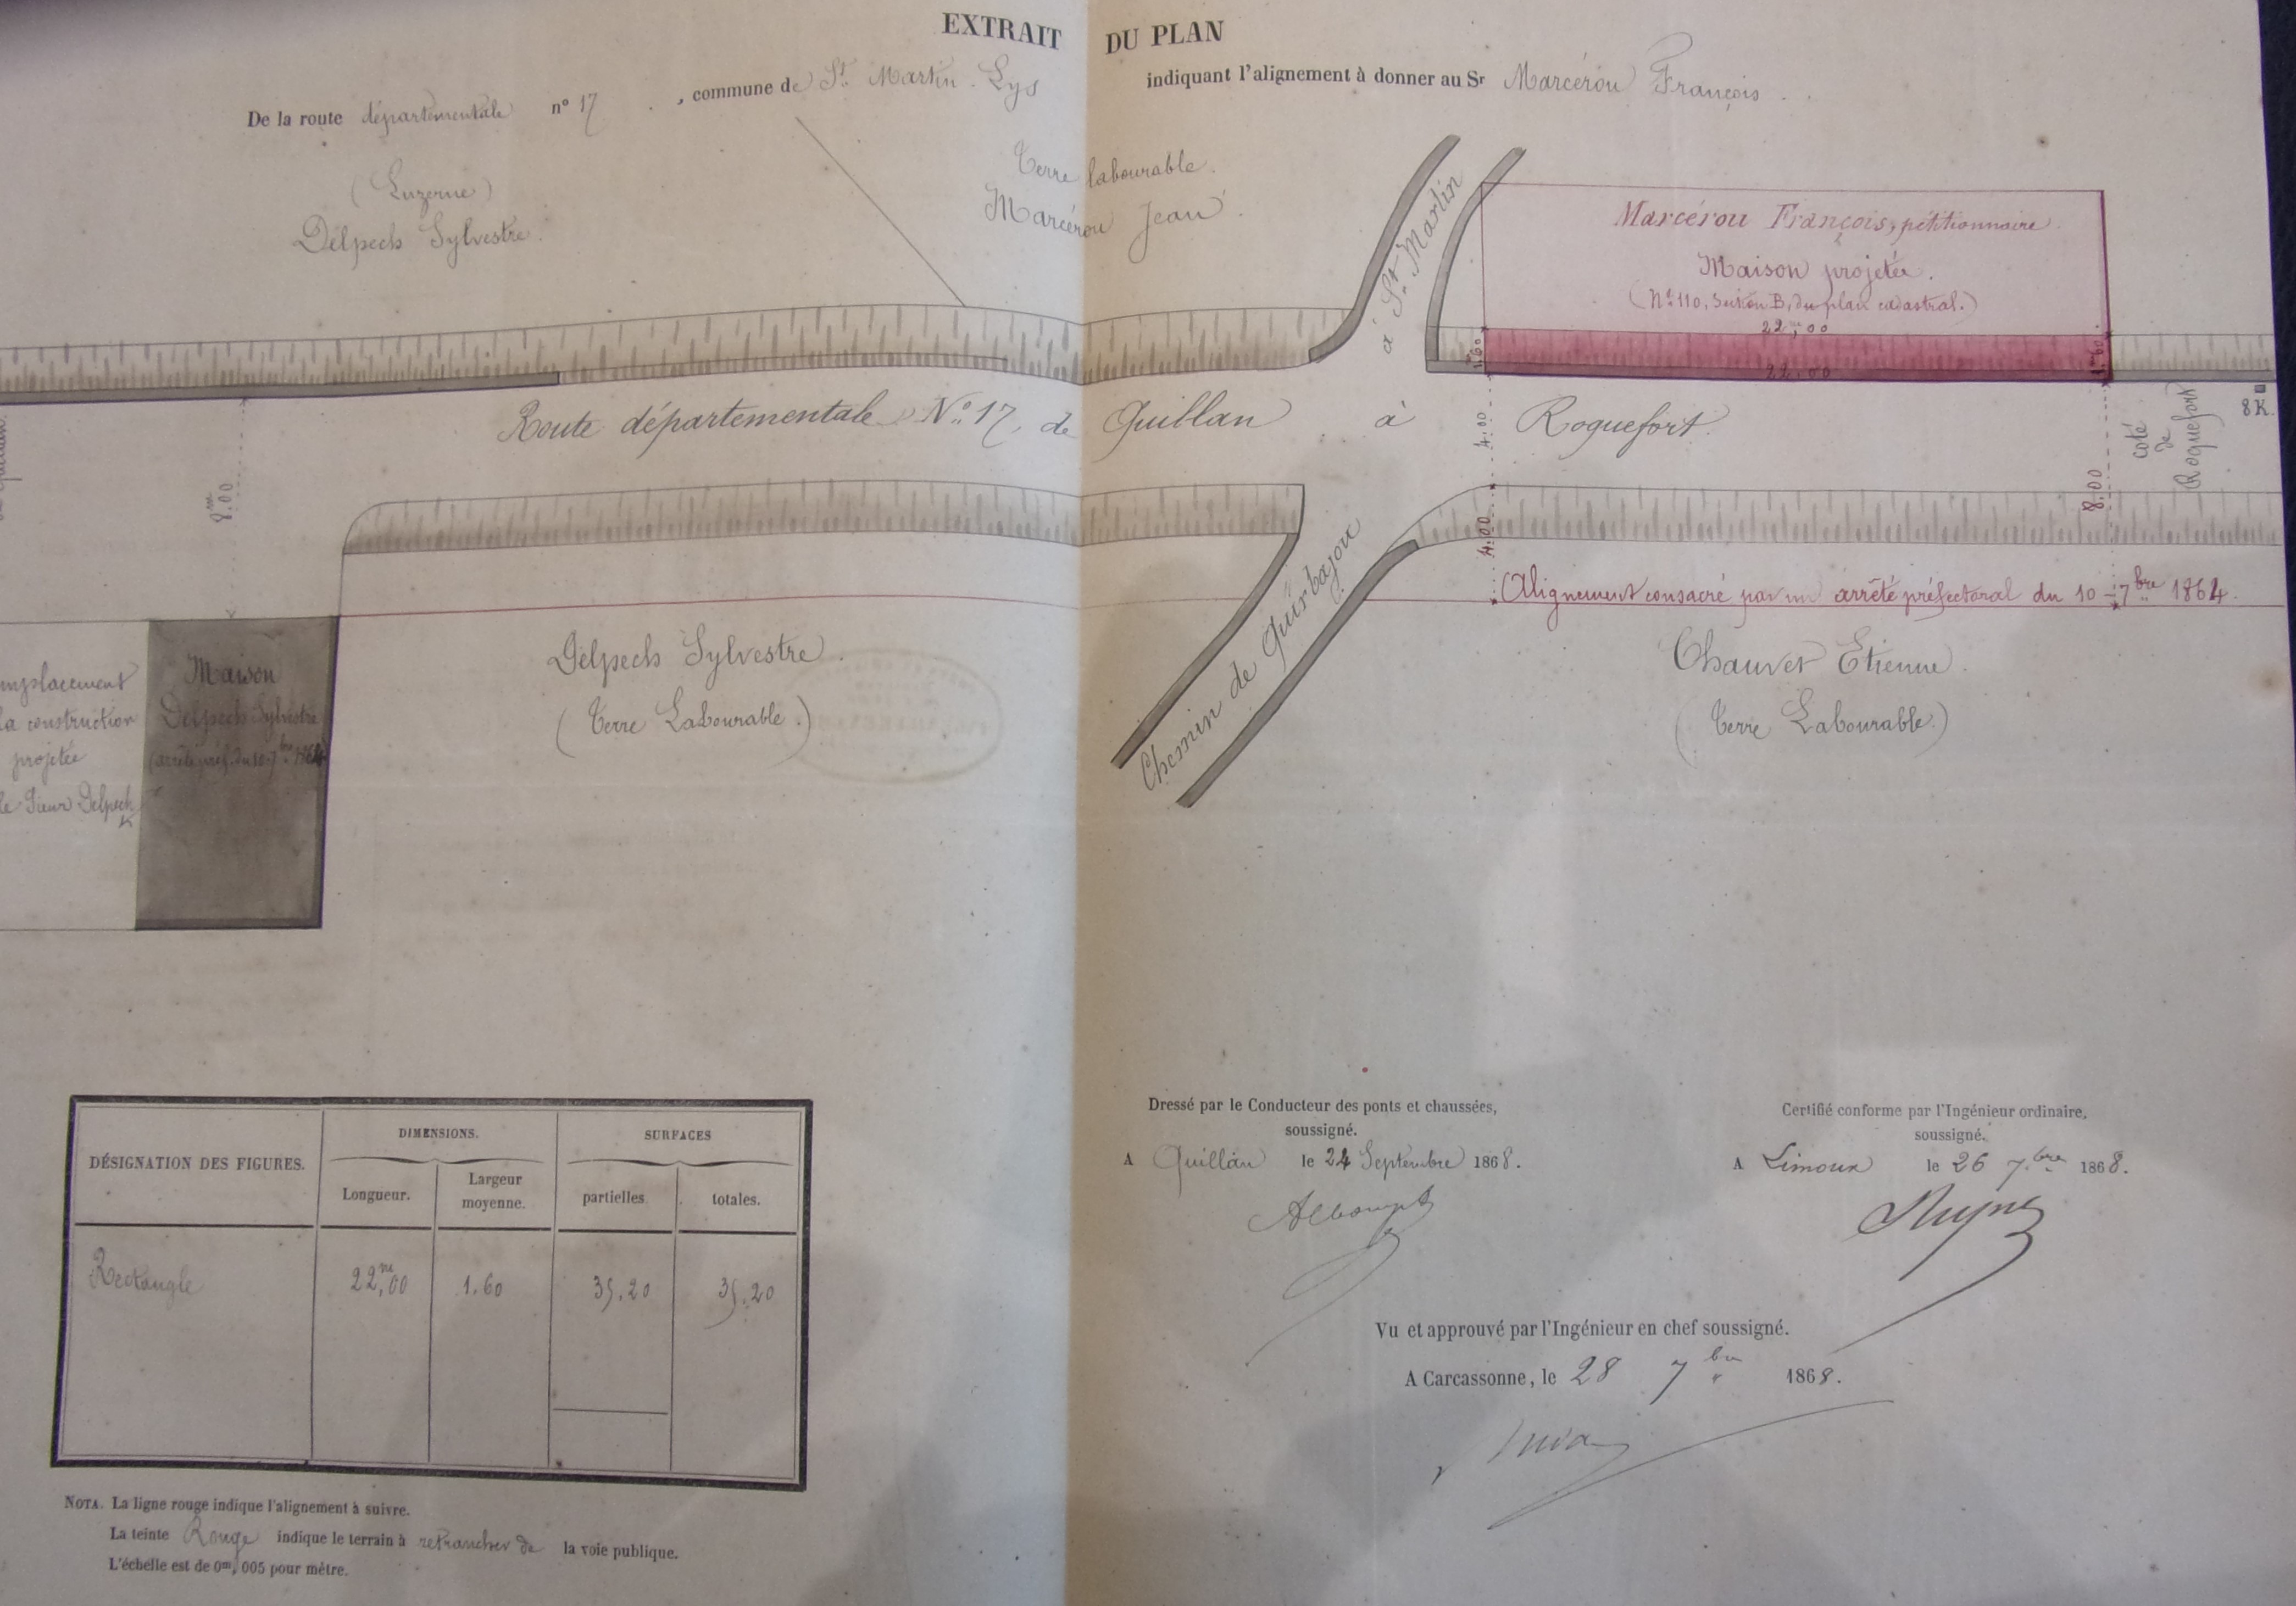 EXTRAIT DU PLAN
De la route départementale n° 17 , commune de St. Martin-Lys indiquant l'alignement à donner au Sr Marcérou François.
(Luzerne)
Delpech Sylvestre.
Terre labourable.
Marcérou Jean.
à St. Martin
Marcérou François, pétitionnaire.
Maison projetée.
(N° 110, Section B, du plan cadastral.)
22,m00
1.m60
1.m60
22.00
Route départementale N° 17, de Quillan à Roquefort.
coté
de
Roquefort
8K
8.m00
4.00
4.00
8.00
Chemin de Quirbajou
Alignement consacré par un arrêté préfectoral du 10 - 7bre 1864.
Maison
Delpech Sylvestre
(arrêté préf. du 10-7bre 1864)
emplacement
la construction
projetée
le Sieur Delpech
Delpech Sylvestre.
(Terre Labourable.)
Chauvet Etienne.
(Terre Labourable.)
DÉSIGNATION DES FIGURES.
DIMENSIONS.
SURFACES
Longueur.
Largeur
moyenne.
partielles
totales.
Rectangle 22,m00 1.60 35.20 35.20
NOTA. La ligne rouge indique l'alignement à suivre.
La teinte Rouge indique le terrain à retrancher de la voie publique.
L'échelle est de 0m,005 pour mètre.
Dressé par le Conducteur des ponts et chaussées,
soussigné.
A Quillan le 24 Septembre 1868.
Certifié conforme par l'Ingénieur ordinaire,
soussigné.
A Limoux le 26 7bre 1868.
Vu et approuvé par l'Ingénieur en chef soussigné.
A Carcassonne, le 28 7bre 1868.